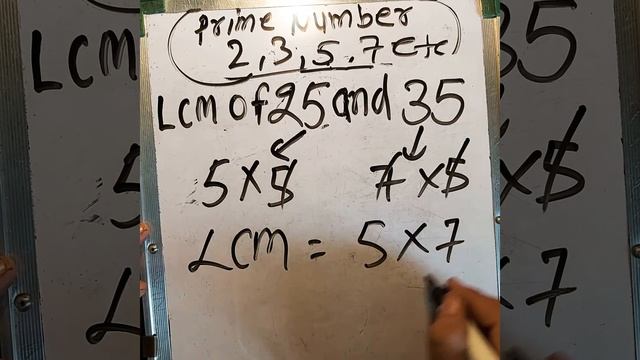 Prime Number
2,3,5,7 etc
LCM of 25 and 35
5×5 7×5
LCM = 5×7